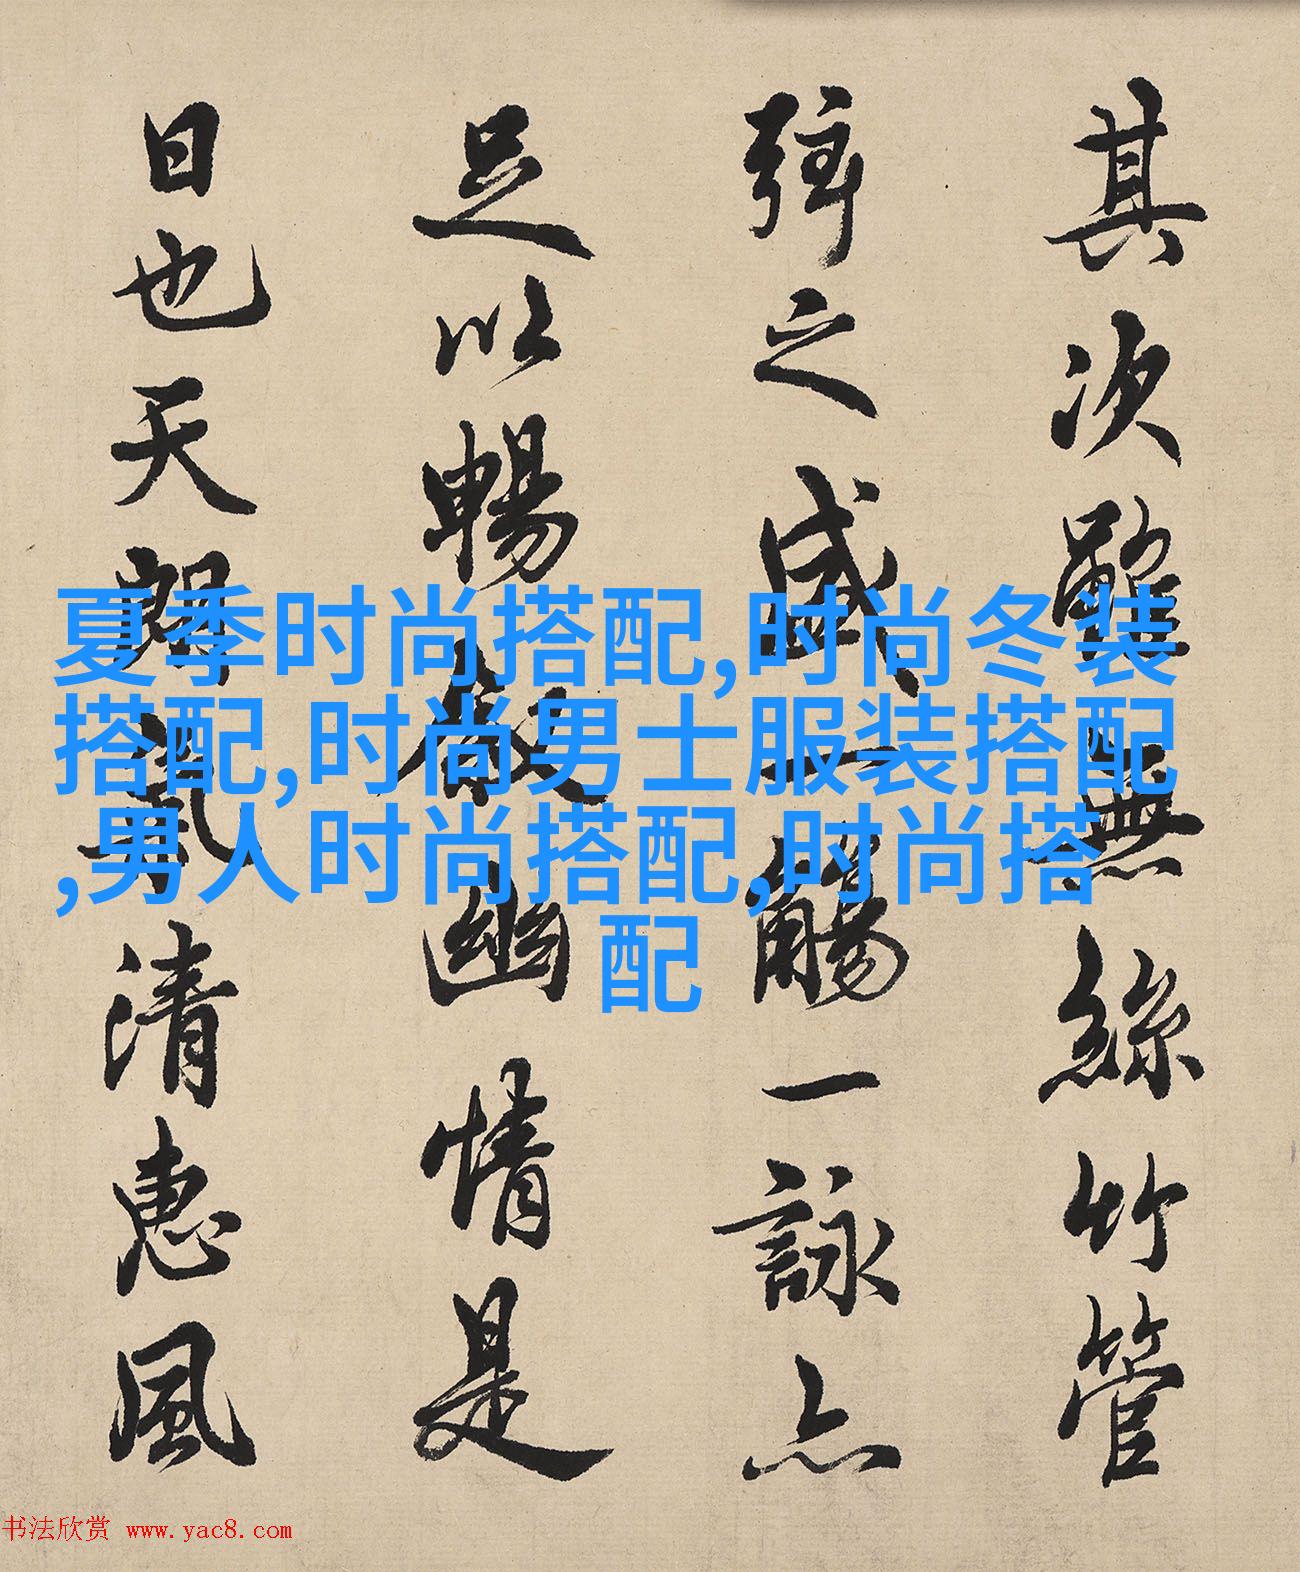 其次雖無絲竹管
弦之盛一觴一詠亦
足以暢敘幽情是
日也天朗氣清惠風
夏季时尚搭配,时尚冬装
搭配,时尚男士服装搭配
,男人时尚搭配,时尚搭
配
书法欣赏 www.yac8.com